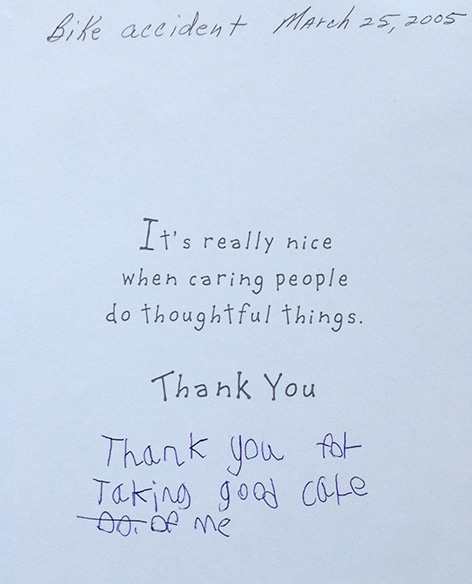 Bike accident March 25, 2005
It's really nice
when caring people
do thoughtful things.
Thank You
Thank you for
Taking good care
of me